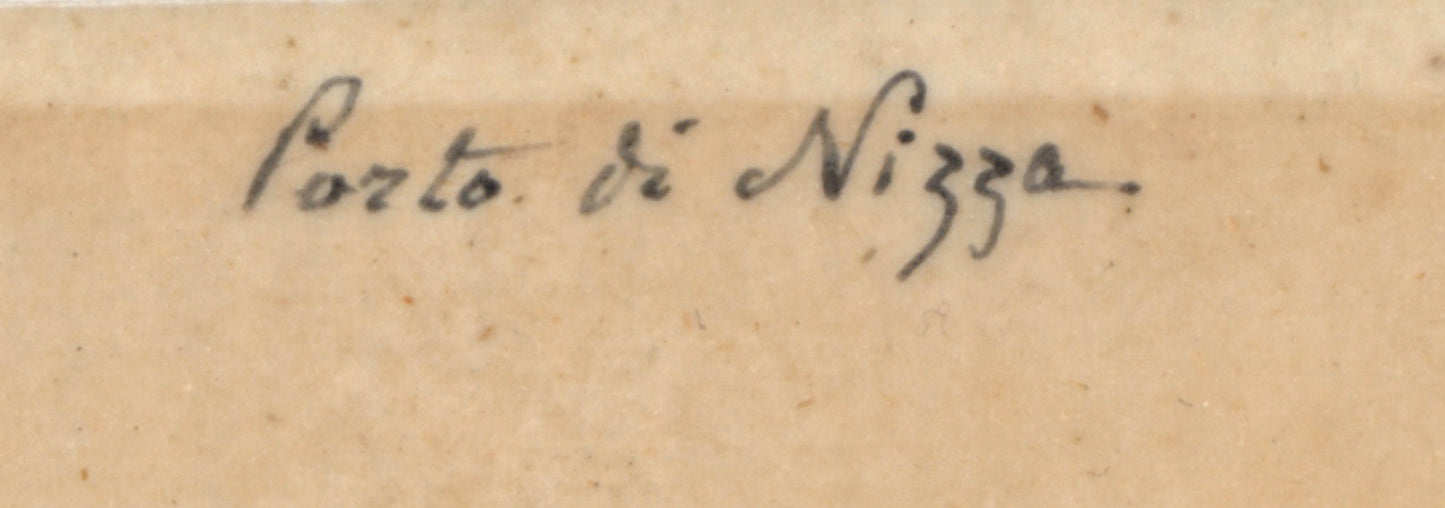 Porto di Nizza.